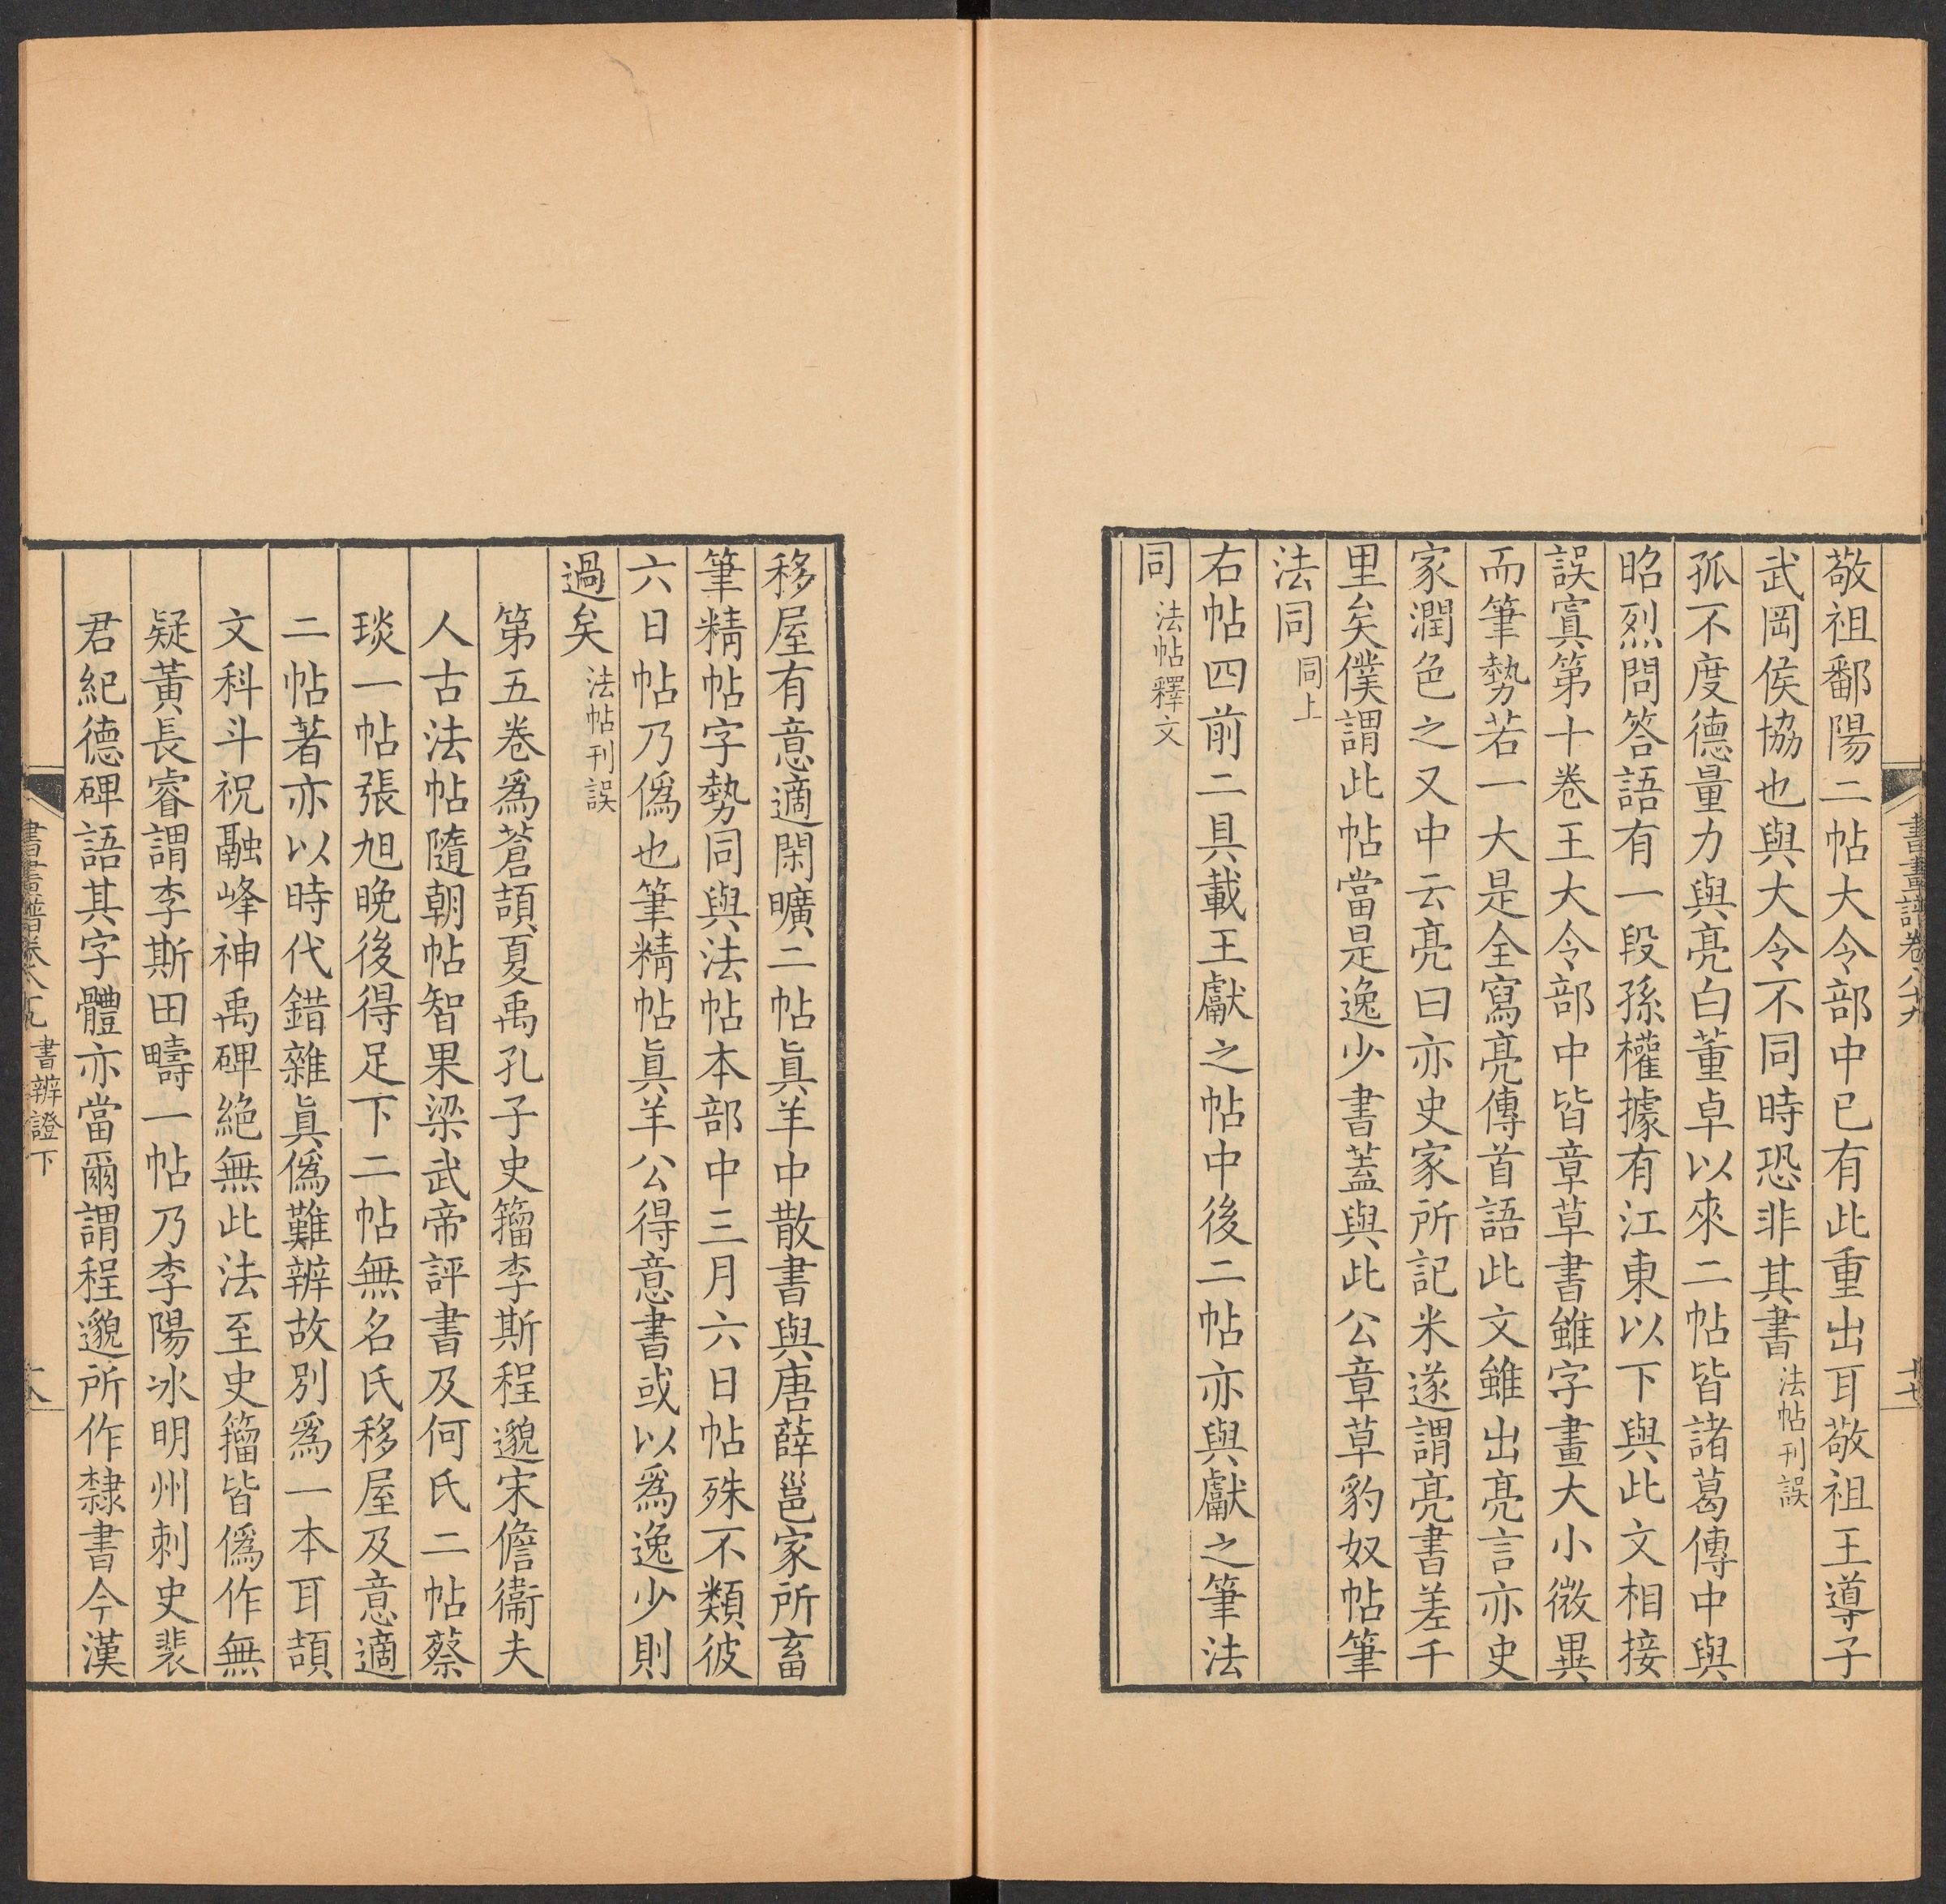 書畫譜卷八十九
十七
敬祖鄱陽二帖大令部中已有此重出耳敬祖王導子
武岡侯協也與大令不同時恐非其書法帖刊誤
孤不度德量力與亮白董卓以來二帖皆諸葛傳中與
昭烈問答語有一段孫權據有江東以下與此文相接
誤寘第十卷王大令部中皆章草書雖字畫大小微異
而筆勢若一大是全寫亮傳首語此文雖出亮言亦史
家潤色之又中云亮曰亦史家所記米遂謂亮書差千
里矣僕謂此帖當是逸少書蓋與此公章草豹奴帖筆
法同同上
右帖四前二具載王獻之帖中後二帖亦與獻之筆法
同法帖釋文
移屋有意適閑曠二帖眞羊中散書與唐薛邕家所畜
筆精帖字勢同與法帖本部中三月六日帖殊不類彼
六日帖乃僞也筆精帖眞羊公得意書或以爲逸少則
過矣法帖刊誤
第五卷爲蒼頡夏禹孔子史籀李斯程邈宋儋衞夫
人古法帖隨朝帖智果梁武帝評書及何氏二帖蔡
琰一帖張旭晚後得足下二帖無名氏移屋及意適
二帖著亦以時代錯雜眞僞難辨故別爲一本耳頡
文科斗祝融峰神禹碑絕無此法至史籀皆僞作無
疑黃長睿謂李斯田疇一帖乃李陽冰明州刺史裴
君紀德碑語其字體亦當爾謂程邈所作隸書今漢
書畫譜卷八十九 書辨證下
十八